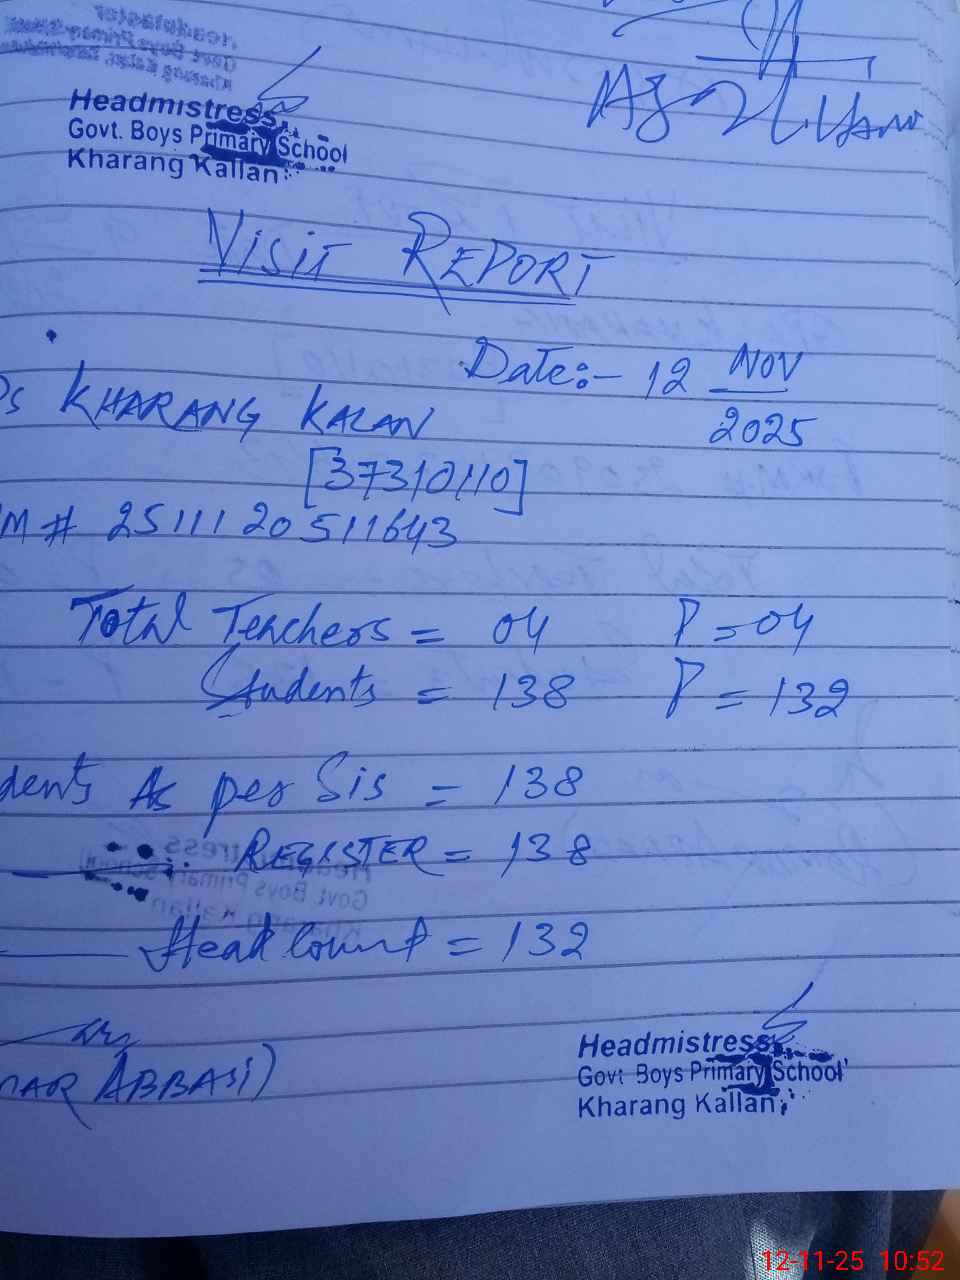 Headmistress
Govt. Boys Primary School
Kharang Kallan
VISIT REPORT
Date:- 12 NOV
2025
Ps KHARANG KALAN
[37310110]
M# 2511120511643
Total Teachers = 04 P = 04
Students = 138 P = 132
dents As per Sis = 138
REGISTER = 138
Head Count = 132
MAR ABBASI)
Headmistress
Govt Boys Primary School
Kharang Kallan
12-11-25 10:52